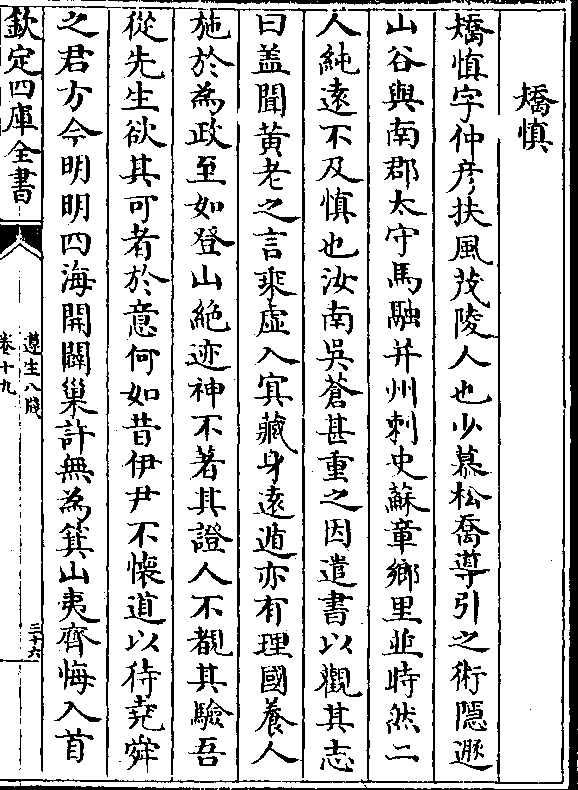 矯慎
矯慎字仲彦扶風茂陵人也少慕松喬導引之術隱遯
山谷與南郡太守馬融并州刺史蘇章鄉里並時然二
人純逺不及慎也汝南吳蒼甚重之因遣書以觀其志
曰盖聞黄老之言乘虛入㝠藏身逺遁亦有理國養人
施於為政至如登山絶迹神不著其證人不覩其驗吾
從先生欲其可者於意何如昔伊尹不懐道以待堯舜
之君方今明明四海開闢巢許無為箕山夷齊悔入首
欽定四庫全書
遵生八牋
卷十九
三十六